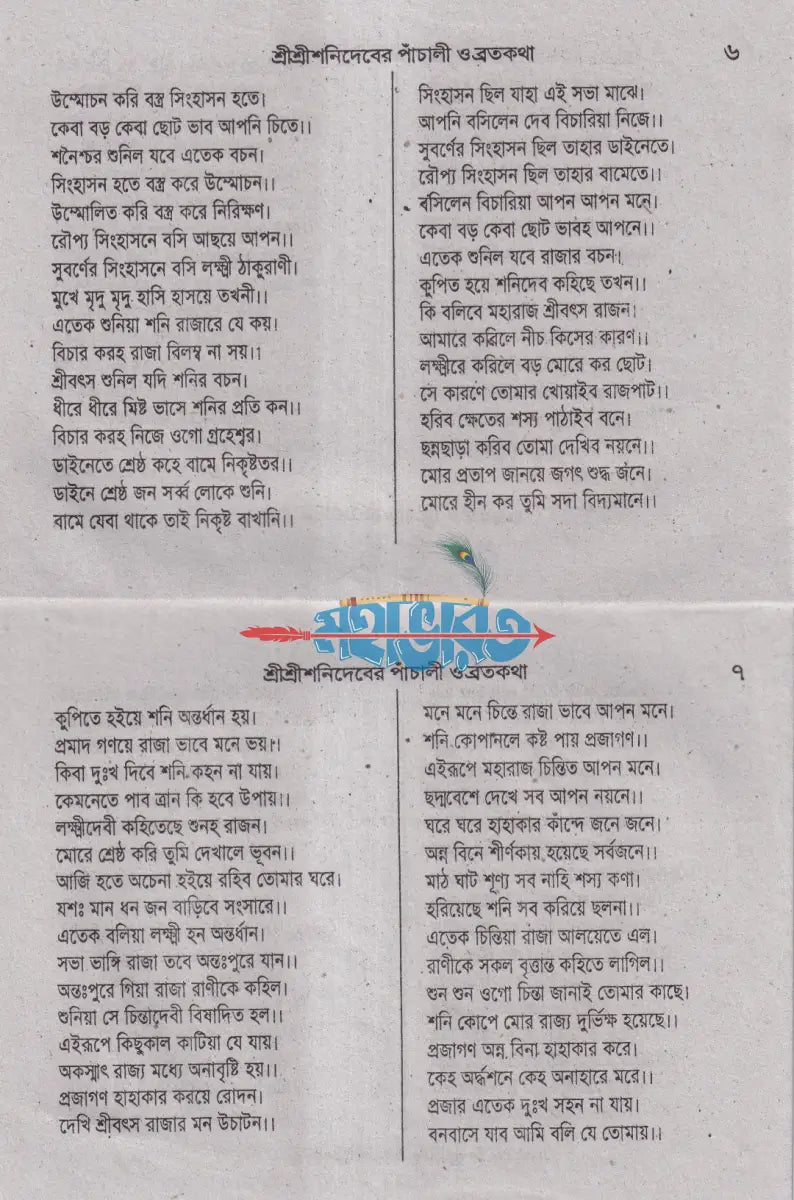 শ্রীশ্রীশনিদেবের পাঁচালী ও ব্রতকথা
৬
উম্মোচন করি বস্ত্র সিংহাসন হতে।
কেবা বড় কেবা ছোট ভাব আপনি চিতে।।
শনৈশ্চর শুনিল যবে এতেক বচন।
সিংহাসন হতে বস্ত্র করে উম্মোচন।।
উম্মোলিত করি বস্ত্র করে নিরিক্ষণ।
রৌপ্য সিংহাসনে বসি আছয়ে আপন।।
সুবর্ণের সিংহাসনে বসি লক্ষ্মী ঠাকুরাণী।
মুখে মৃদু মৃদু হাসি হাসয়ে তখনী।।
এতেক শুনিয়া শনি রাজারে যে কয়।
বিচার করহ রাজা বিলম্ব না সয়।।
শ্রীবৎস শুনিল যদি শনির বচন।
ধীরে ধীরে মিষ্ট ভাসে শনির প্রতি কন।।
বিচার করহ নিজে ওগো গ্রহেশ্বর।
ডাইনেতে শ্রেষ্ঠ কহে বামে নিকৃষ্টতর।।
ডাইনে শ্রেষ্ঠ জন সর্ব্ব লোকে শুনি।
বামে যেবা থাকে তাই নিকৃষ্ট বাখানি।।
সিংহাসন ছিল যাহা এই সভা মাঝে।
আপনি বসিলেন দেব বিচারিয়া নিজে।।
সুবর্ণের সিংহাসন ছিল তাহার ডাইনেতে।
রৌপ্য সিংহাসন ছিল তাহার বামেতে।।
বসিলেন বিচারিয়া আপন আপন মনে।
কেবা বড় কেবা ছোট ভাবহ আপনে।।
এতেক শুনিল যবে রাজার বচন।
কুপিত হয়ে শনিদেব কহিছে তখন।।
কি বলিবে মহারাজ শ্রীবৎস রাজন।
আমারে করিলে নীচ কিসের কারণ।।
লক্ষ্মীরে করিলে বড় মোরে কর ছোট।
সে কারণে তোমার খোয়াইব রাজপাট।।
হরিব ক্ষেতের শস্য পাঠাইব বনে।
ছন্নছাড়া করিব তোমা দেখিব নয়নে।।
মোর প্রতাপ জানয়ে জগৎ শুদ্ধ জনে।
মোরে হীন কর তুমি সদা বিদ্যমানে।।
মহাভারত
শ্রীশ্রীশনিদেবের পাঁচালী ও ব্রতকথা
৭
কুপিতে হইয়ে শনি অন্তর্ধান হয়।
প্রমাদ গণয়ে রাজা ভাবে মনে ভয়।।
কিবা দুঃখ দিবে শনি কহন না যায়।
কেমনেতে পাব ত্রান কি হবে উপায়।।
লক্ষ্মীদেবী কহিতেছে শুনহ রাজন।
মোরে শ্রেষ্ঠ করি তুমি দেখালে ভূবন।।
আজি হতে অচেনা হইয়ে রহিব তোমার ঘরে।
যশঃ মান ধন জন বাড়িবে সংসারে।।
এতেক বলিয়া লক্ষ্মী হন অন্তর্ধান।
সভা ভাঙ্গি রাজা তবে অন্তঃপুরে যান।।
অন্তঃপুরে গিয়া রাজা রাণীকে কহিল।
শুনিয়া সে চিন্তাদেবী বিষাদিত হল।।
এইরূপে কিছুকাল কাটিয়া যে যায়।
অকস্মাৎ রাজ্য মধ্যে অনাবৃষ্টি হয়।।
প্রজাগণ হাহাকার করয়ে রোদন।
দেখি শ্রীবৎস রাজার মন উচাটন।।
মনে মনে চিন্তে রাজা ভাবে আপন মনে।
শনি কোপানলে কষ্ট পায় প্রজাগণ।।
এইরূপে মহারাজ চিন্তিত আপন মনে।
ছদ্মবেশে দেখে সব আপন নয়নে।।
ঘরে ঘরে হাহাকার কাঁন্দে জনে জনে।
অন্ন বিনে শীর্ণকায় হয়েছে সর্বজনে।।
মাঠ ঘাট শূণ্য সব নাহি শস্য কণা।
হরিয়েছে শনি সব করিয়ে ছলনা।।
এতেক চিন্তিয়া রাজা আলয়েতে এল।
রাণীকে সকল বৃত্তান্ত কহিতে লাগিল।।
শুন শুন ওগো চিন্তা জানাই তোমার কাছে।
শনি কোপে মোর রাজ্য দুর্ভিক্ষ হয়েছে।।
প্রজাগণ অন্ন বিনা হাহাকার করে।
কেহ অর্দ্ধশনে কেহ অনাহারে মরে।।
প্রজার এতেক দুঃখ সহন না যায়।
বনবাসে যাব আমি বলি যে তোমায়।।